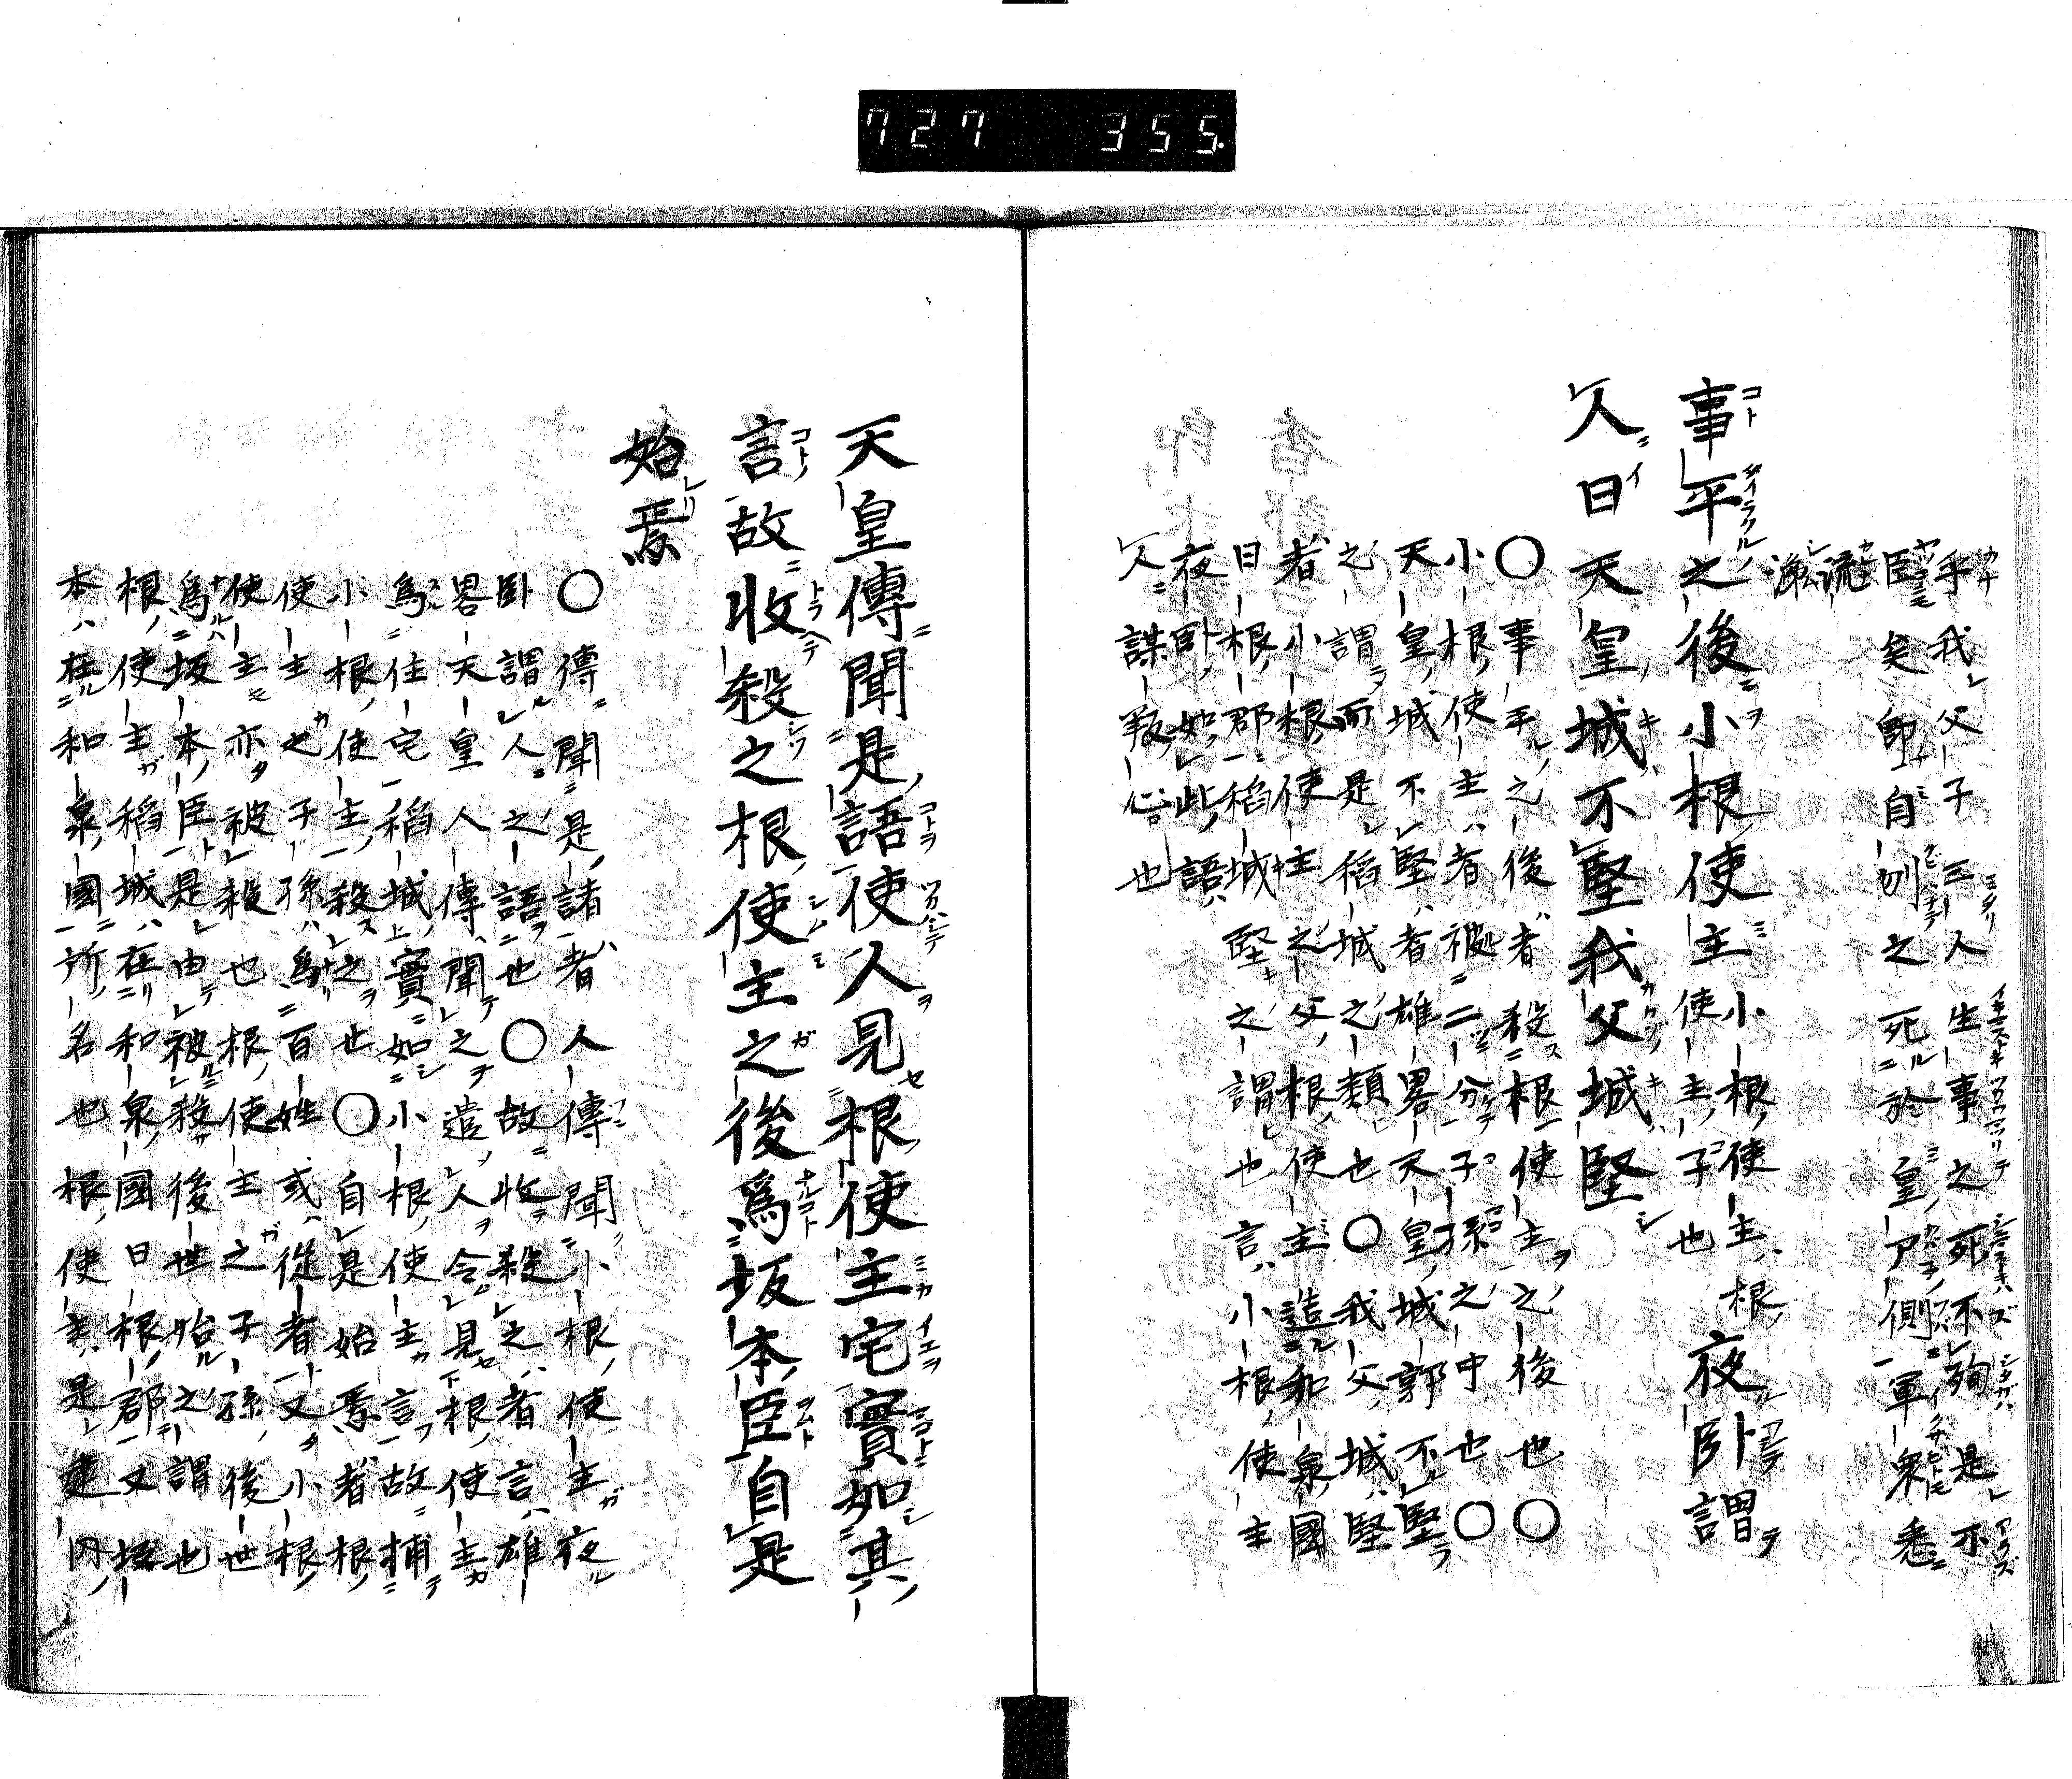 727 355
乎我父子三人生事之死不殉是不
臣矣即自刎之死於皇尸側軍衆悉
流涕
事平之後小根使主小根使主根
使主子也夜卧謂
人曰天皇城不堅我父城堅
○事平之後者殺根使主之後也○
小根使主者被二分子孫之中也○
天皇城不堅者雄畧天皇城郭不堅
之謂而是稻城之類也○我父城堅
者小根使主之父根使主造和泉國
日根郡稻城堅之謂也言小根使主
夜卧如此語
人謀叛心也
天皇傳聞是語使人見根使主宅實如其
言故收殺之根使主之後爲坂本臣自是
始焉
○傳聞是諸者人傳聞小根使主夜
卧謂人之語也○故收殺之者言雄
畧天皇人傳聞之遣人令見根使主
爲住宅稻城實如小根使主言故捕
小根使主殺之也○自是始焉者根
使主之子孫爲百姓或從者又小根
使主亦被殺也根使主之子孫後世
爲坂本臣是由被殺後世始之謂也
根使主稻城在和泉國日根郡又坂
本在和泉國所名也根使主是建内